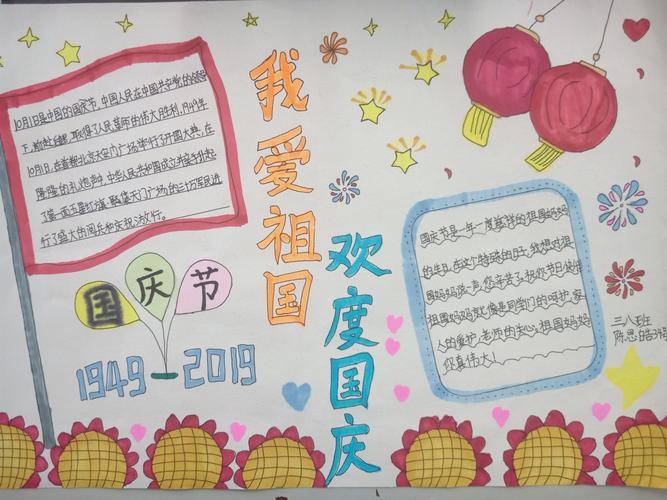 10月1日是中国的国庆节,中国人民在中国共产党的领导
下,前赴后继,取得了人民革命的伟大胜利,1949年
10月1日,在首都北京天安门广场举行了开国大典,在
隆隆的礼炮声中,中华人民共和国成立并亲手升起
了第一面五星红旗。聚集天门广场的三十万军民进
行了盛大的阅兵和庆祝游行。
国庆节
1949 2019
我爱祖国
欢度国庆
国庆节是一年一度慈祥的祖国妈妈
的生日,在这个特殊的日子,我想对祖
国妈妈说一声,您辛苦了,祝你节日快乐
祖国妈妈就像是同学们的呵护,家
人的爱护,老师的关心。祖国妈妈
你真伟大!
三八班
陈思皓